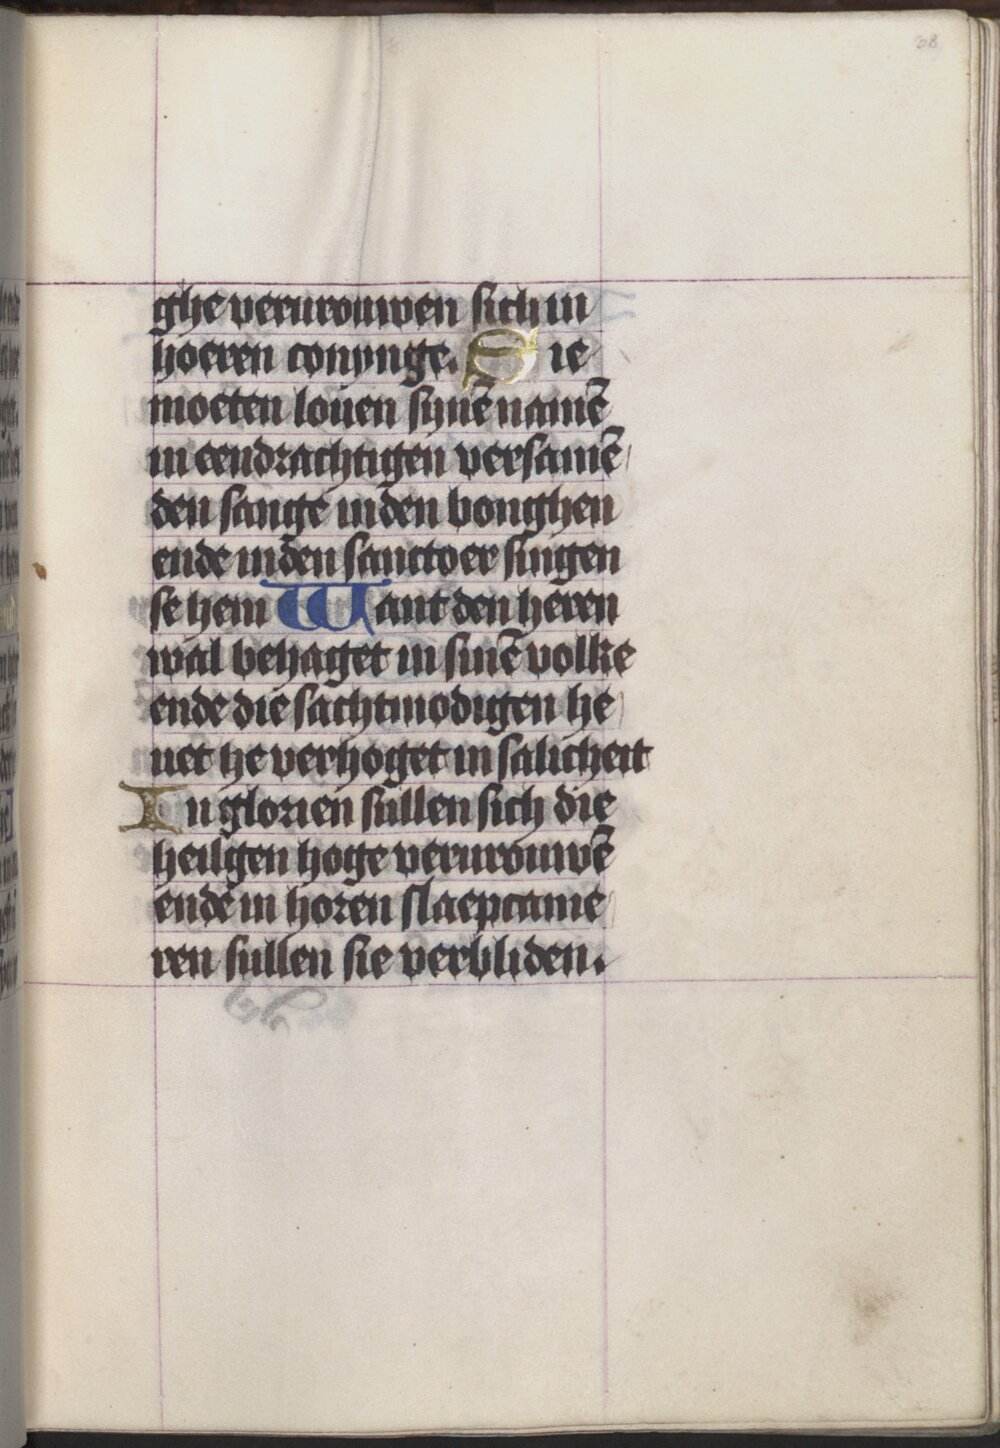 38
ghe verurouwen sich in
hoeren conynge. Sie
moeten louen synē namē
in eendrachtigen versamē
den sange inden bonghen
ende inden sanctoer singen
se hem Want den heren
wal behaget in sinē volke
ende die sachtmodigen he
uet he verhoget in salicheit
In glorien sullen sich die
heiligen hoge verurouwē
ende in horen slaepcame
ren sullen sie verbliden.